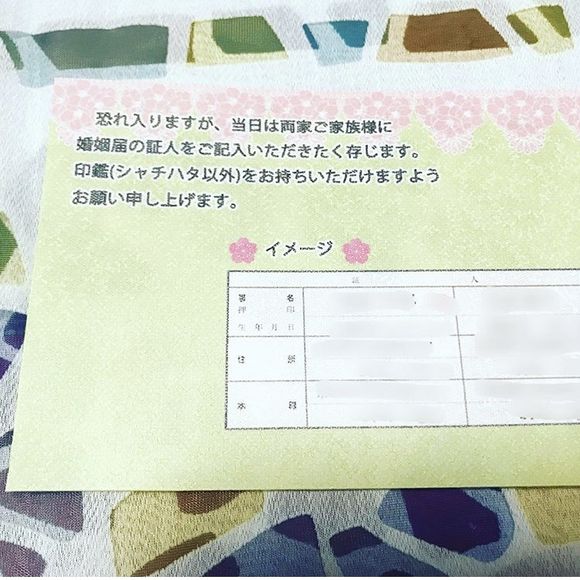 恐れ入りますが、当日は両家ご家族様に
婚姻届の証人をご記入いただきたく存じます。
印鑑(シャチハタ以外)をお持ちいただけますよう
お願い申し上げます。
イメージ
証 人
署 名
押 印
生 年 月 日
住 所
本 籍